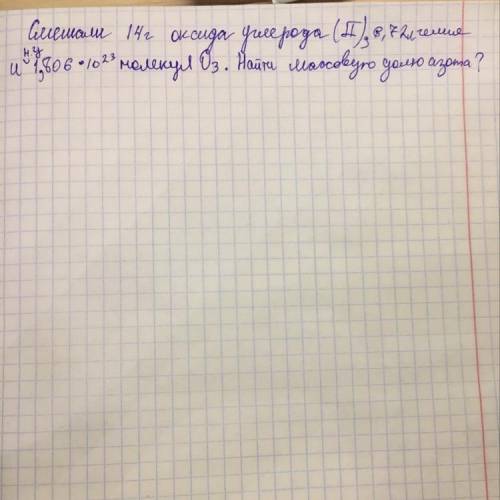 Смешали 14г оксида углерода (II), 6,72л гелия
н.у
и 1,806 • 10²³ молекул O₃. Найти массовую долю азота?